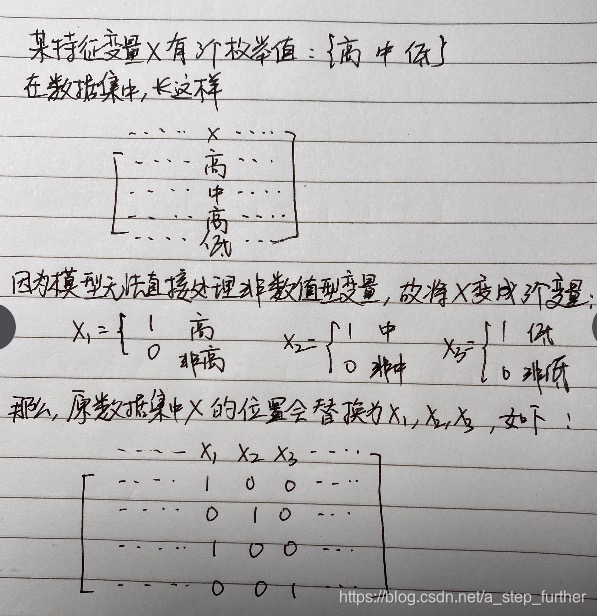 某特征变量X有3个枚举值：{高 中 低}
在数据集中,长这样
---- X ----
---- 高 ---
---- 中 ----
---- 高 ----
---- 低 ---
因为模型无法直接处理非数值型变量,故将X变成3个变量:
X₁={ 1 高 X₂={ 1 中 X₃={ 1 低
0 非高 0 非中 0 非低
那么,原数据集中X的位置会替换为X₁,X₂,X₃,如下：
---- X₁ X₂ X₃ ----
---- 1 0 0 ----
---- 0 1 0 ---
---- 1 0 0 ---
---- 0 0 1 ---
https://blog.csdn.net/a_step_further